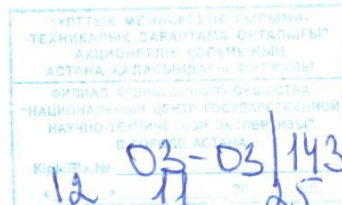 "ҰЛТТЫҚ МЕМЛЕКЕТТІК ҒЫЛЫМИ-
ТЕХНИКАЛЫҚ САРАПТАМА ОРТАЛЫҒЫ"
АКЦИОНЕРЛІК ҚОҒАМЫНЫҢ
АСТАНА ҚАЛАСЫНДАҒЫ ФИЛИАЛЫ
ФИЛИАЛ АКЦИОНЕРНОГО ОБЩЕСТВА
"НАЦИОНАЛЬНЫЙ ЦЕНТР ГОСУДАРСТВЕННОЙ
НАУЧНО-ТЕХНИЧЕСКОЙ ЭКСПЕРТИЗЫ"
В ГОРОДЕ АСТАНА
Кіріс/Вх.№ 03-03/143
12 11 25